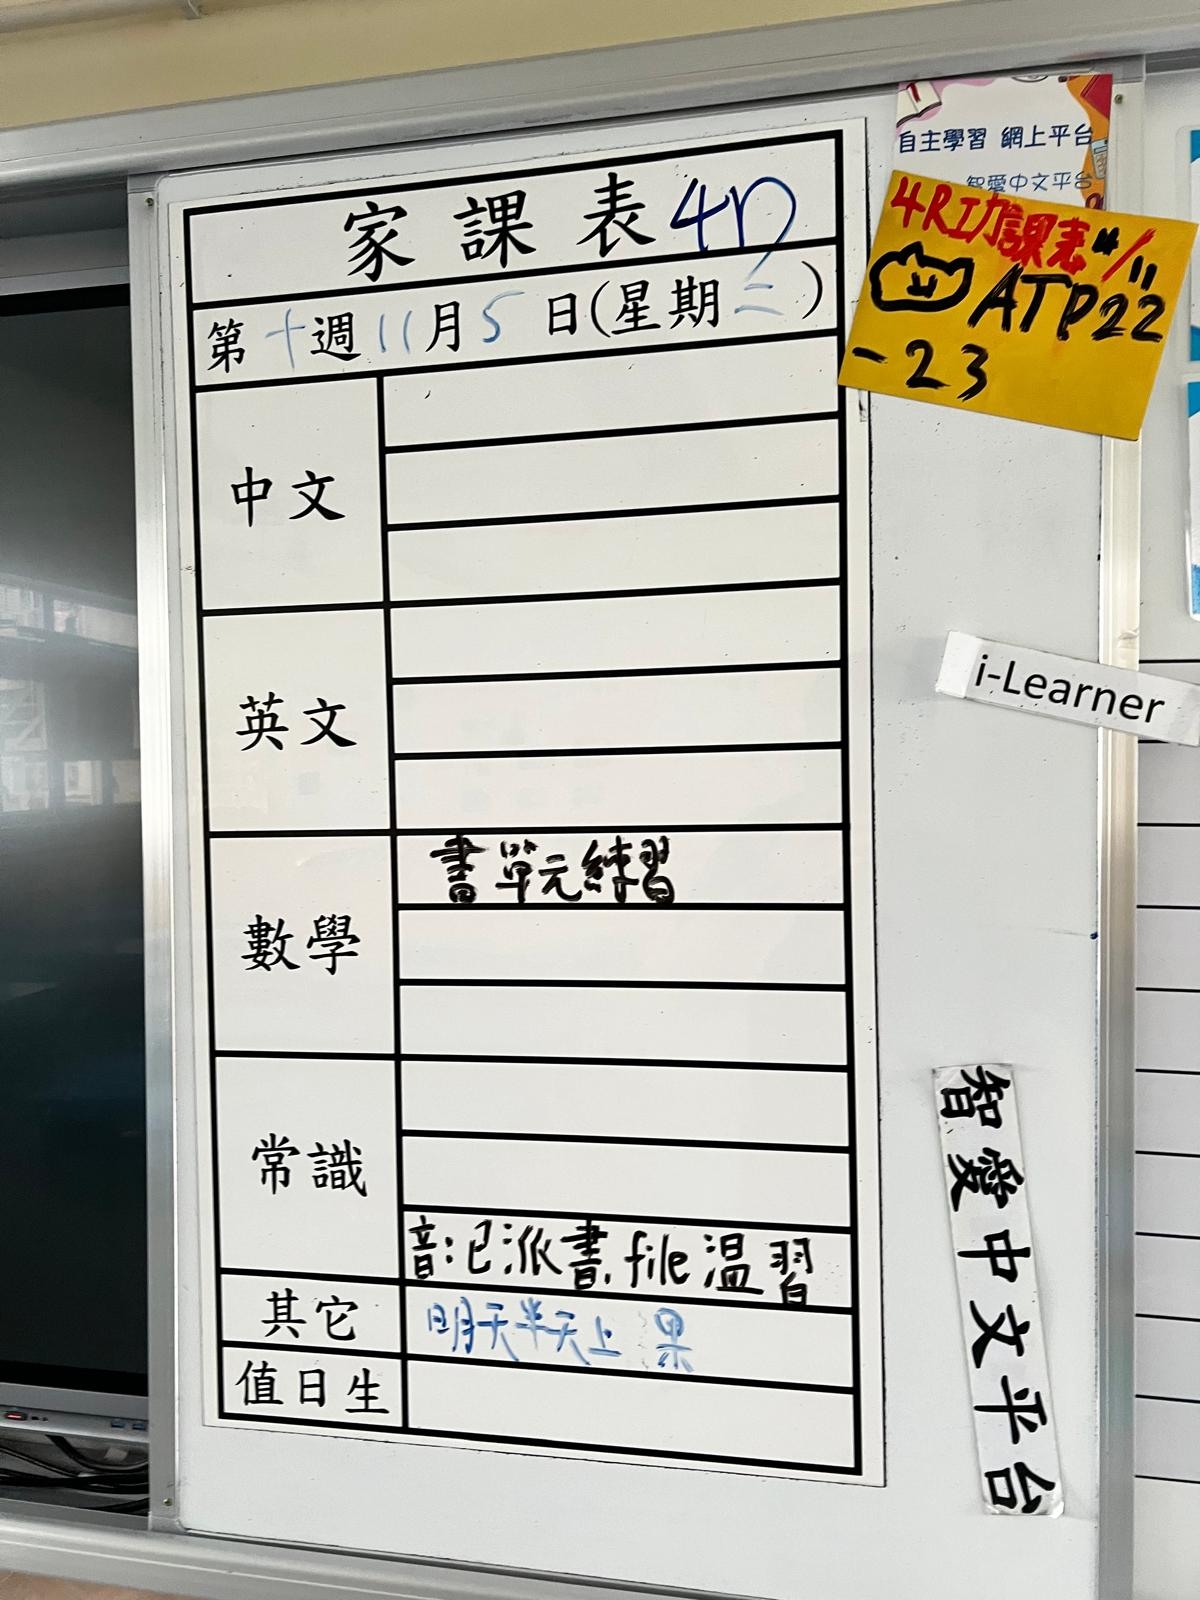 家課表 4D
第十週11月5日(星期二)
中文
英文
數學
書單元練習
常識
音:已派書, file溫習
其它
明天半天上課
值日生
自主學習 網上平台
智愛中文平台
4R功課表 4/11
ATP22
-23
i-Learner
智愛中文平台